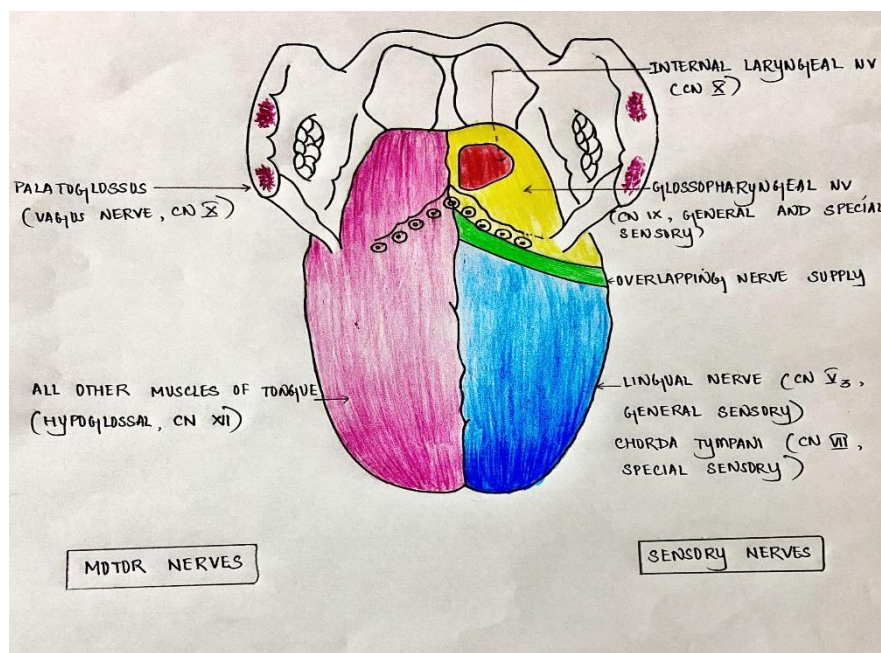 INTERNAL LARYNGEAL NV
(CN X)
PALATOGLOSSUS
(VAGUS NERVE, CN X)
GLOSSOPHARYNGEAL NV
(CN IX, GENERAL AND SPECIAL
SENSORY)
OVERLAPPING NERVE SUPPLY
ALL OTHER MUSCLES OF TONGUE
(HYPOGLOSSAL, CN XII)
LINGUAL NERVE (CN V3,
GENERAL SENSORY)
CHORDA TYMPANI (CN VII,
SPECIAL SENSORY)
MOTOR NERVES
SENSORY NERVES